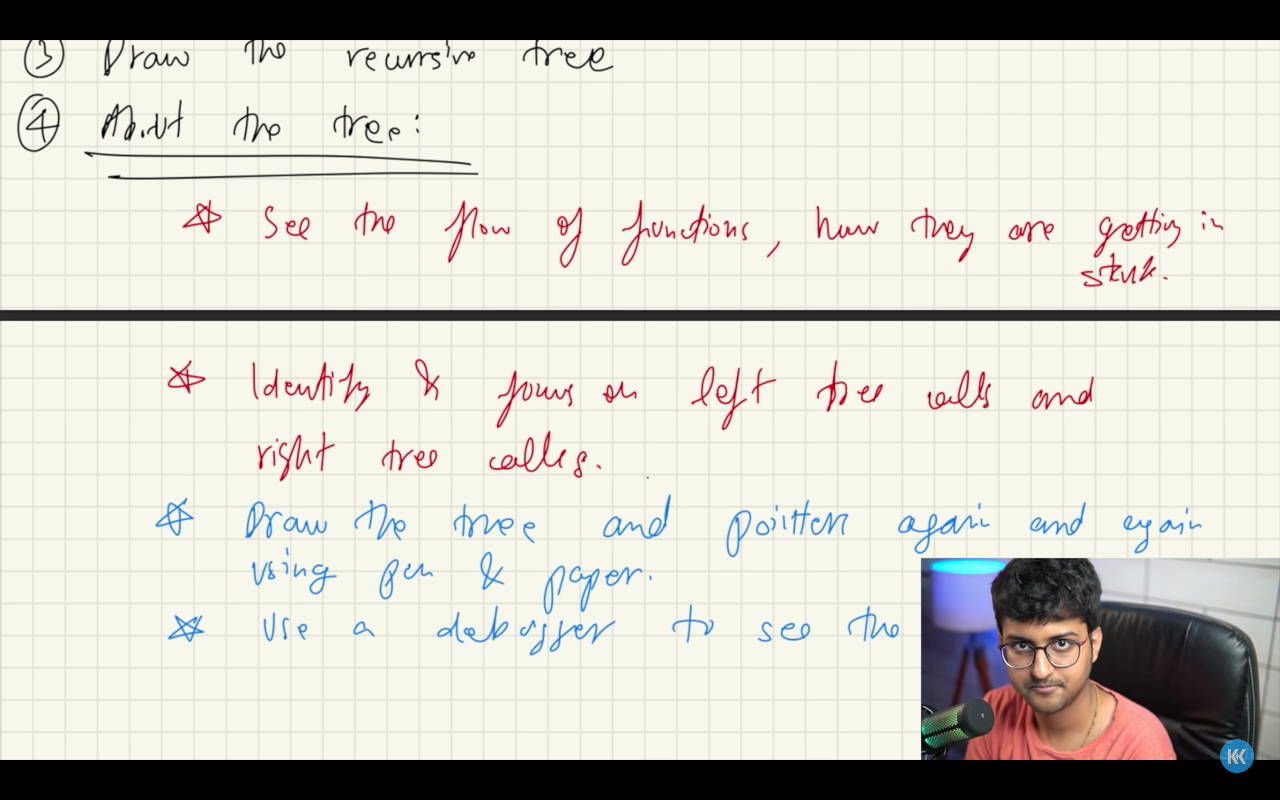 ③ Draw the recursive tree
④ About the tree:
☆ See the flow of functions, how they are getting in
stack.
☆ Identify & focus on left tree calls and
right tree calls.
☆ Draw the tree and pointers again and again
using pen & paper.
☆ Use a debugger to see the
KK